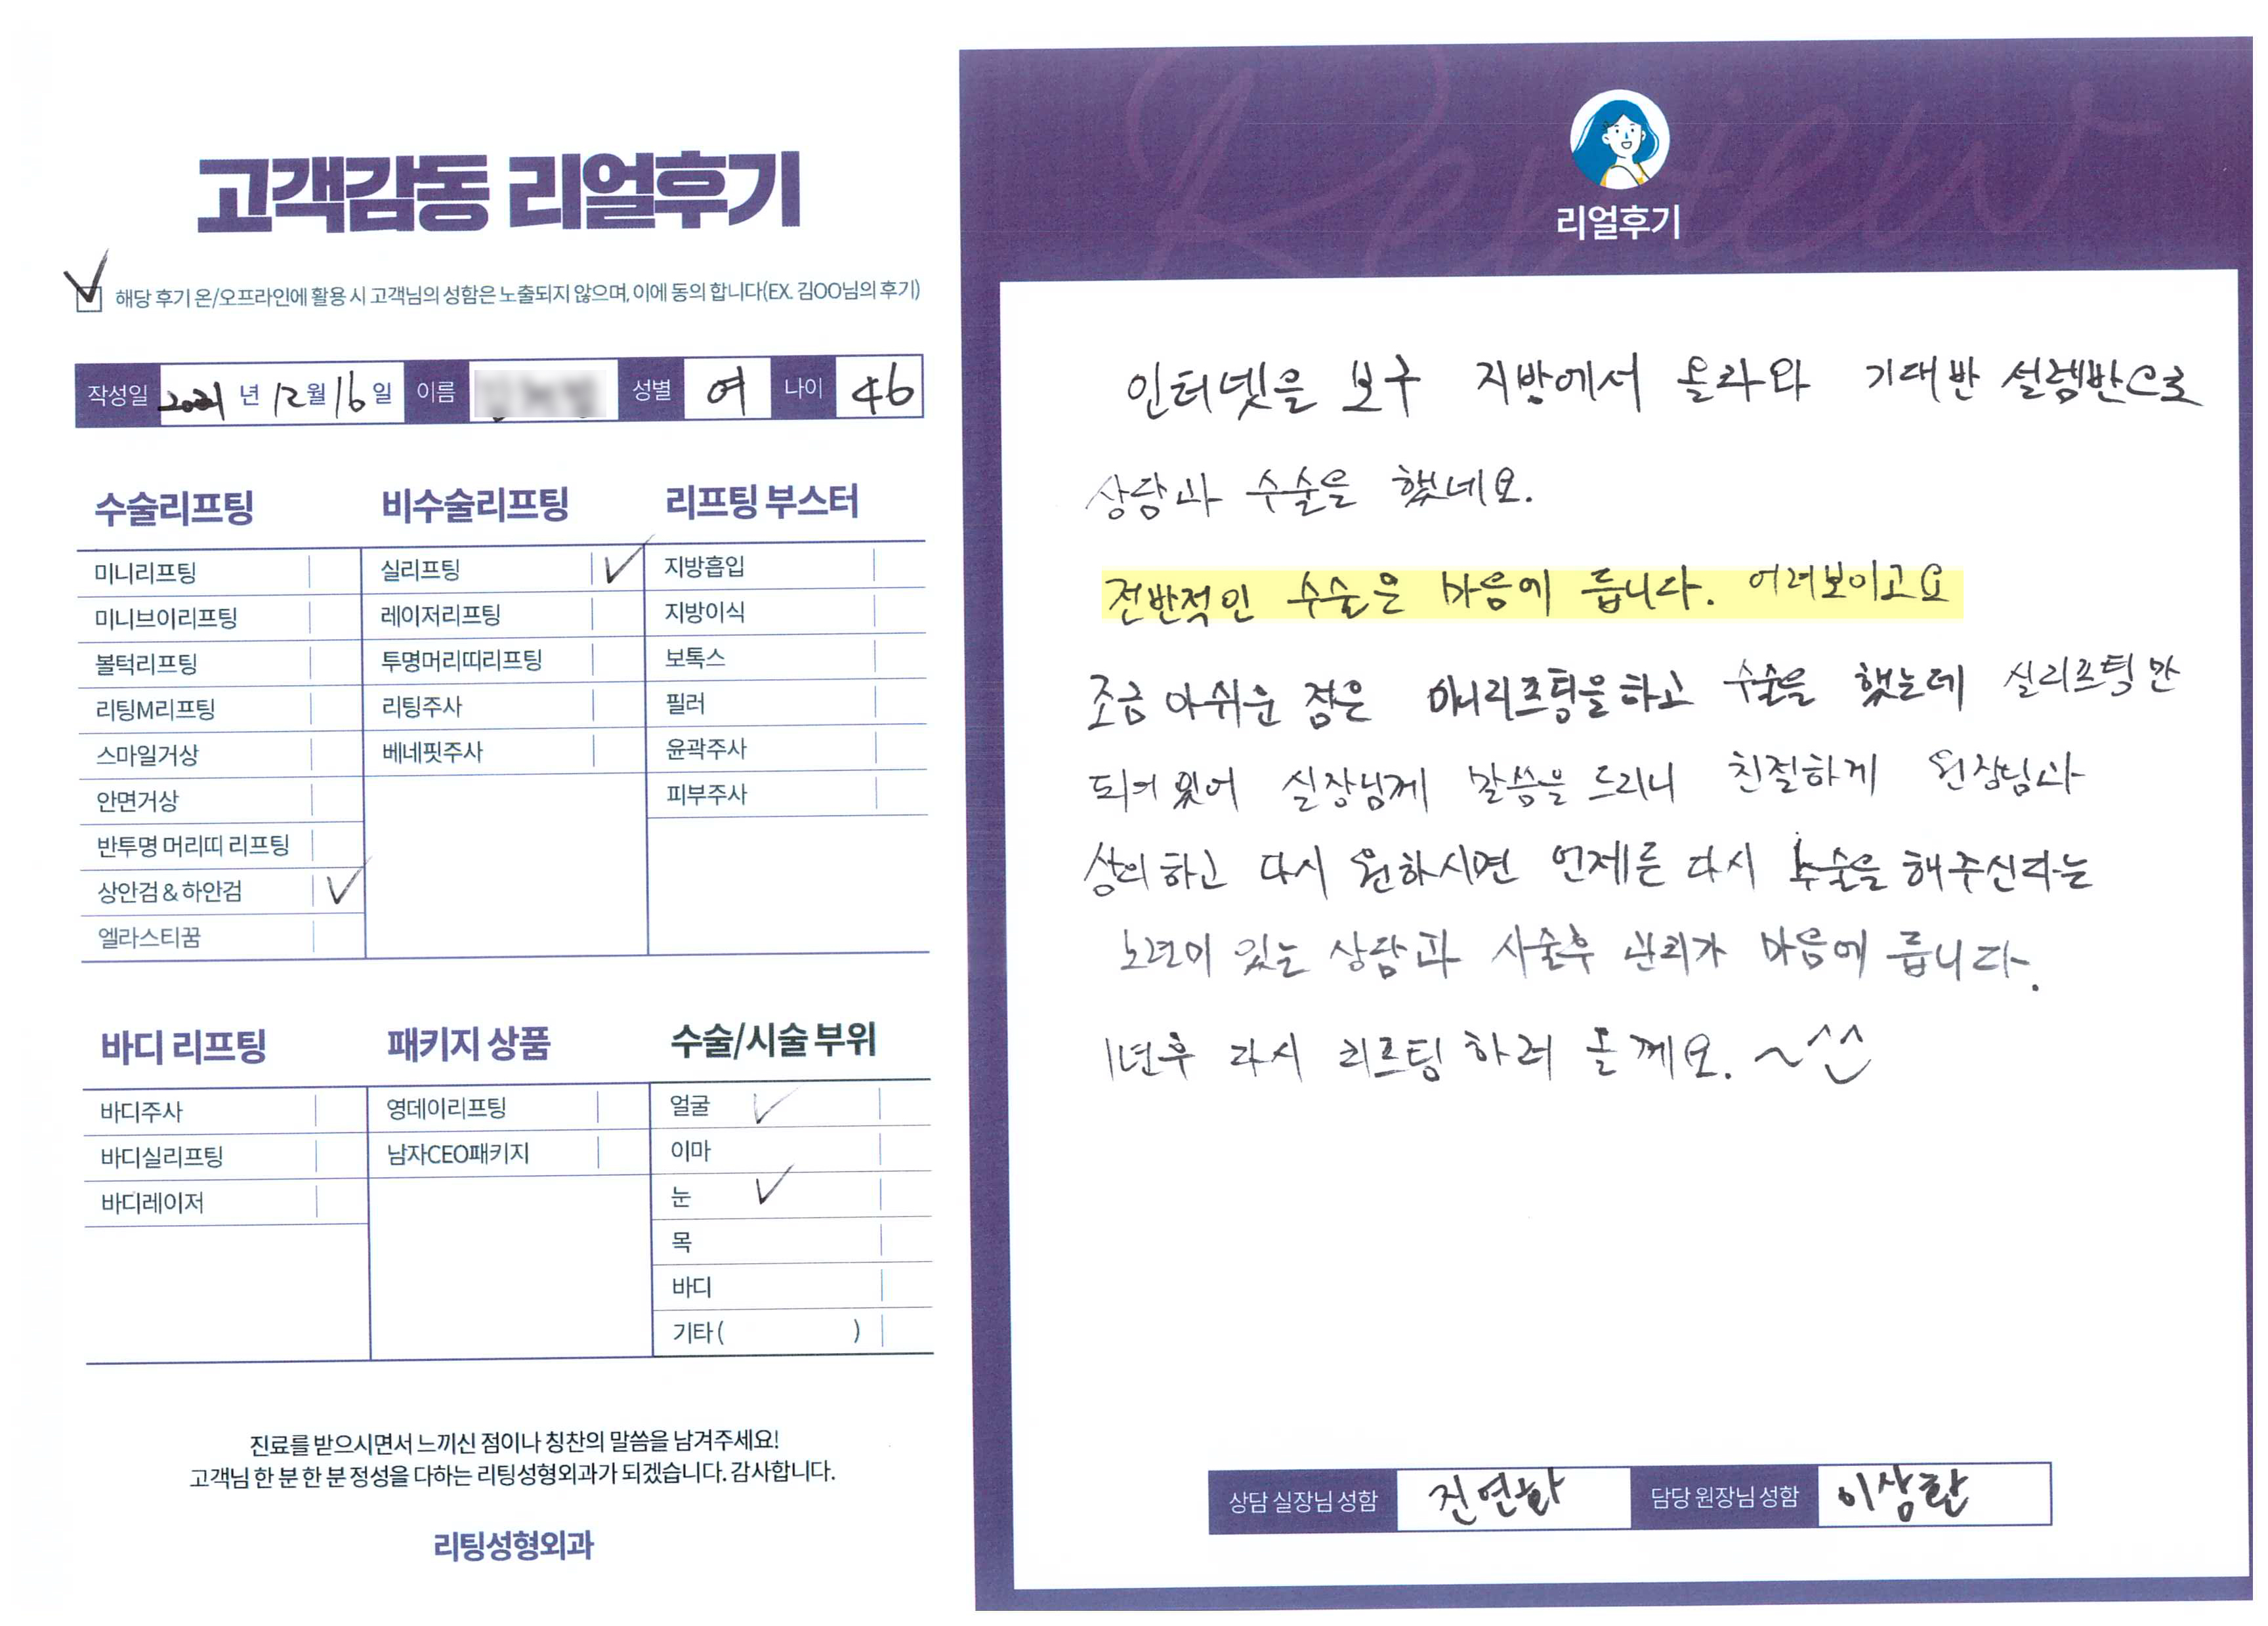 고객감동 리얼후기
해당 후기 온/오프라인에 활용 시 고객님의 성함은 노출되지 않으며, 이에 동의 합니다(EX. 김OO님의 후기)
작성일 2021 년 12월 16일 이름 성별 여 나이 46
수술리프팅
미니리프팅
미니브이리프팅
볼턱리프팅
리팅M리프팅
스마일거상
안면거상
반투명 머리띠 리프팅
상안검 & 하안검
엘라스티꿈
비수술리프팅
실리프팅
레이저리프팅
투명머리띠리프팅
리팅주사
베네핏주사
리프팅 부스터
지방흡입
지방이식
보톡스
필러
윤곽주사
피부주사
바디 리프팅
바디주사
바디실리프팅
바디레이저
패키지 상품
영데이리프팅
남자CEO패키지
수술/시술 부위
얼굴
이마
눈
목
바디
기타 ( )
진료를 받으시면서 느끼신 점이나 칭찬의 말씀을 남겨주세요!
고객님 한 분 한 분 정성을 다하는 리팅성형외과가 되겠습니다. 감사합니다.
리팅성형외과
Review
리얼후기
인터넷을 보구 지방에서 올라와 기대반 설렘반으로
상담과 수술을 했네요.
전반적인 수술은 마음에 듭니다. 어려보이고요
조금 아쉬운 점은 미니리프팅을하고 수술을 했는데 실리프팅만
되어 있어 실장님께 말씀을 드리니 친절하게 원장님과
상의 하고 다시 원하시면 언제든 다시 수술을 해주신다는
노련미 있는 상담과 사술후 관리가 마음에 듭니다.
1년후 다시 리프팅 하러 올께요. ~^^
상담 실장님 성함 진연화 담당 원장님 성함